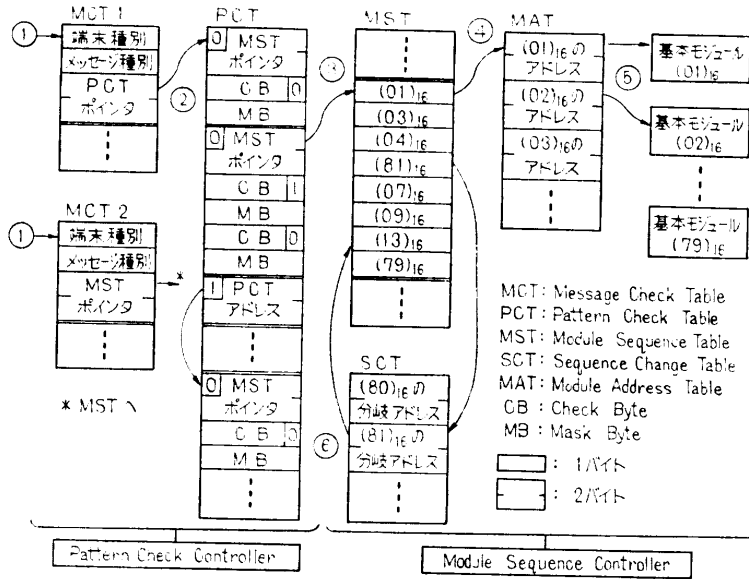 MCT 1
① 端末種別
メッセージ種別
PCT
ポインタ
MCT 2
① 端末種別
メッセージ種別
MST
ポインタ
*
* MST へ
PCT
0 MST
ポインタ
②
CB 0
MB
0 MST
ポインタ
CB 1
MB
CB 0
MB
1 PCT
アドレス
0 MST
ポインタ
CB 0
MB
MST
③
(01)16
(03)16
(04)16
(81)16
(07)16
(09)16
(13)16
(79)16
SCT
(80)16の
分岐アドレス
(81)16の
分岐アドレス
⑥
④
MAT
(01)16の
アドレス
(02)16の
アドレス
(03)16の
アドレス
⑤
基本モジュール
(01)16
基本モジュール
(02)16
基本モジュール
(79)16
MCT : Message Check Table
PCT : Pattern Check Table
MST : Module Sequence Table
SCT : Sequence Change Table
MAT : Module Address Table
CB : Check Byte
MB : Mask Byte
: 1バイト
: 2バイト
Pattern Check Controller
Module Sequence Controller